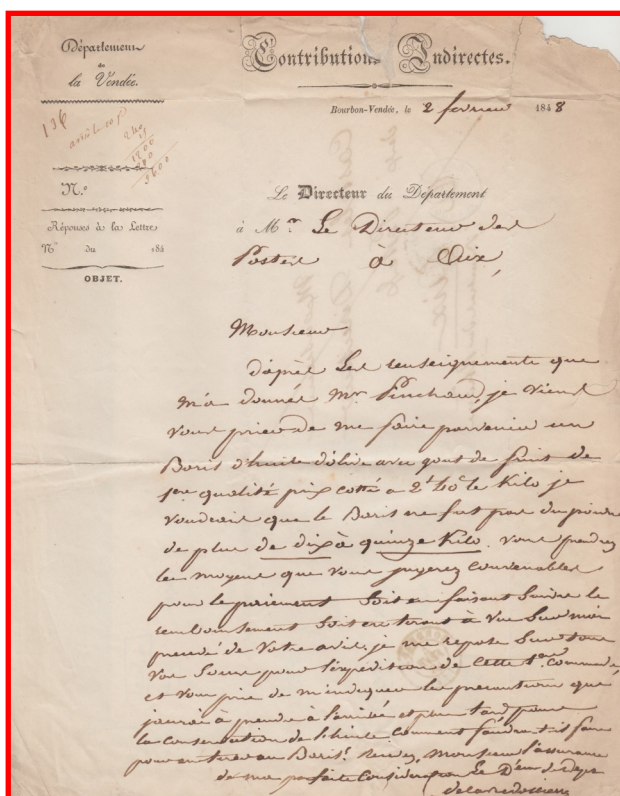 Département
de
la Vendée.
Contributions Indirectes.
Bourbon-Vendée, le 2 février 1848
136
240
15
1200
240
3600
N.º
Le Directeur du Département
Réponses à la Lettre
à M.r Le Directeur des
N.º du 184
Postes à Aix,
OBJET.
Monsieur
d'après les renseignements que
m'a donnés Mr. je viens
vous prier de me faire parvenir un
Baril d'huile d'olive avec gout de fruit de
1ere qualité prix cotté a 2f 40c le Kilo je
voudrais que le Baril ne fut pas du poids
de plus de dix à quinze Kilo. vous prendrez
les moyens que vous jugerez convenables
pour le paiement soit en faisant suivre le
remboursement soit en tirant à vue sur moi
précédé de votre avis. je me repose sur tous
vos soins pour l'expédition de cette 1ere commande,
et vous prie de m'indiquer les precautions que
j'aurai à prendre à l'arrivée et plus tard pour
la conservation de l'huile. Comment faudra-t-il faire
pour Baril? Recevez, Monsieur l'assurance
de ma parfaite Consideration Le Dteur